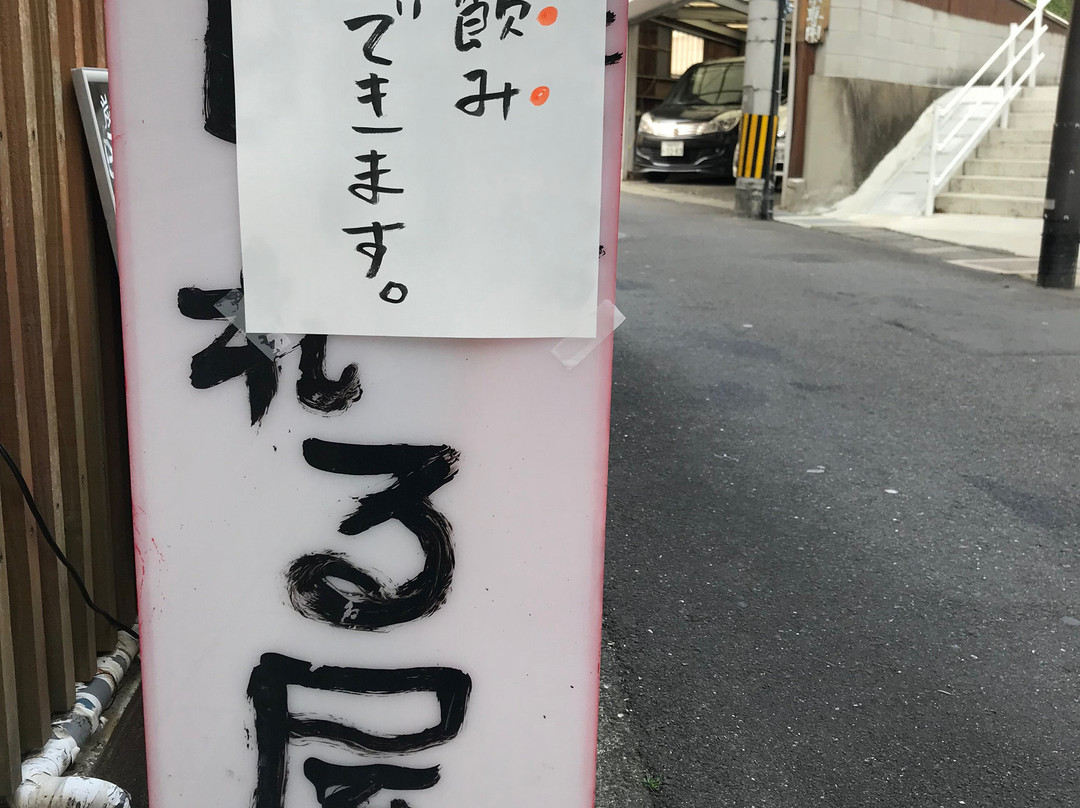 飲み
できます。
れる